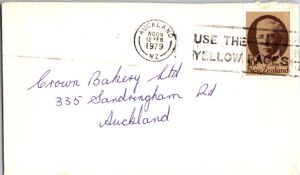 AUCKLAND
NOON
12 FEB
1979
N.Z.
USE THE
YELLOW PAGES
New Zealand
Crown Bakery Ltd
335 Sandringham Rd
Auckland